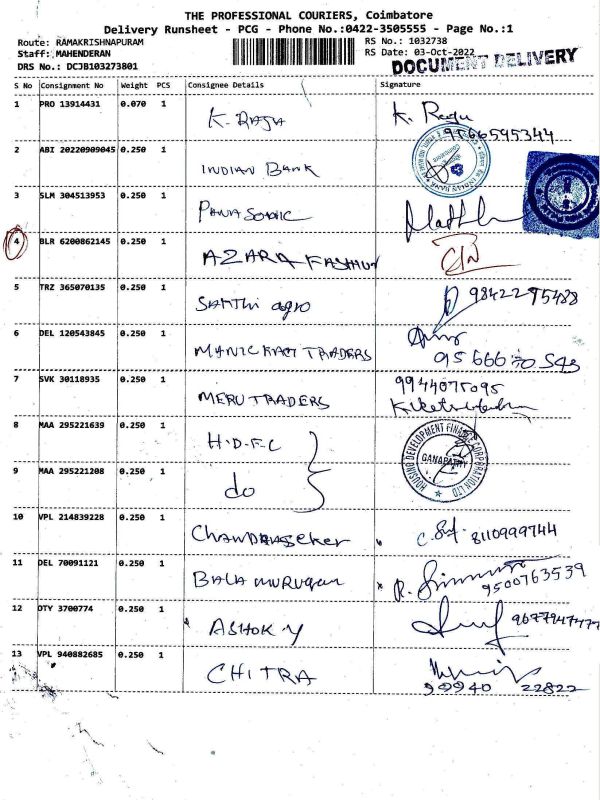 THE PROFESSIONAL COURIERS, Coimbatore
Delivery Runsheet - PCG - Phone No.:0422-3505555 - Page No.:1
Route: RAMAKRISHNAPURAM RS No.: 1032738
Staff: MAHENDERAN RS Date: 03-Oct-2022
DRS No.: DCJB103273801 DOCUMENT DELIVERY
S No Consignment No Weight PCS Consignee Details Signature
1 PRO 13914431 0.070 1 K. RAJA K. Raju
9566595344
2 ABI 20220909045 0.250 1 INDIAN BANK
3 SLM 304513953 0.250 1 PANASONIC
4 BLR 6200862145 0.250 1 AZARA FASHION
5 TRZ 365070135 0.250 1 SAKTHI agro 98422 75488
6 DEL 120543845 0.250 1 TRADERS
7 SVK 30118935 0.250 1 MERU TRADERS 9944075095
8 MAA 295221639 0.250 1 H.D.F.C
HOUSING DEVELOPMENT FINANCE CORPORATION LTD
GANAPATHY
9 MAA 295221208 0.250 1 do
10 VPL 214839228 0.250 1 Chandraseker 8110999744
11 DEL 70091121 0.250 1 BALAMURUGAN 9500763539
12 OTY 3700774 0.250 1 ASHOK Y
13 VPL 940882685 0.250 1 CHITRA
99940 22822